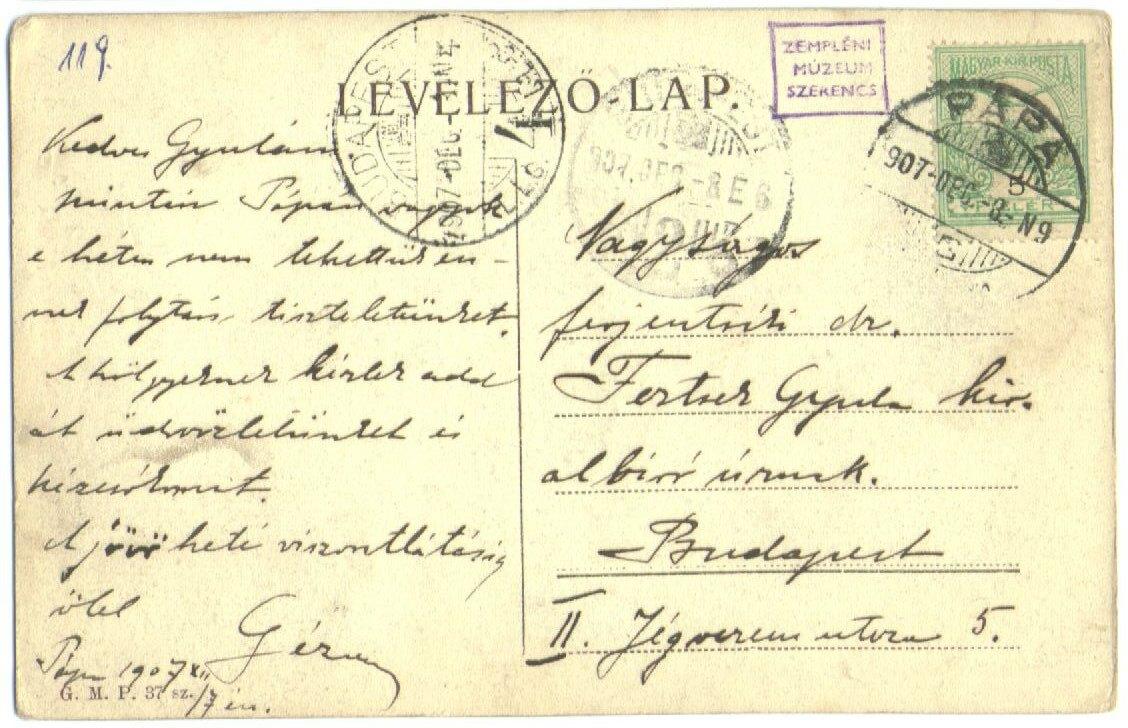 119.
LEVELEZŐ-LAP.
ZEMPLÉNI
MÚZEUM
SZERENCS
MAGYAR KIR. POSTA
PÁPA
907-DEC.-8-N9
BUDAPEST
907 DEC
Kedves Gyulám
miután Pápán vagyok
e héten nem tehettük en-
nek folytán tiszteletünket.
A hölgyeknek kérlek add
át üdvözletünket és
kézcsókomat.
A jövő heti viszontlátásig
ölel
Géza
Pápa 1907 XII
/7 én.
G. M. P. 37 sz.
Nagyságos
dr.
Gyula kir.
albíró úrnak.
Budapest
II. Jégverem utcza 5.